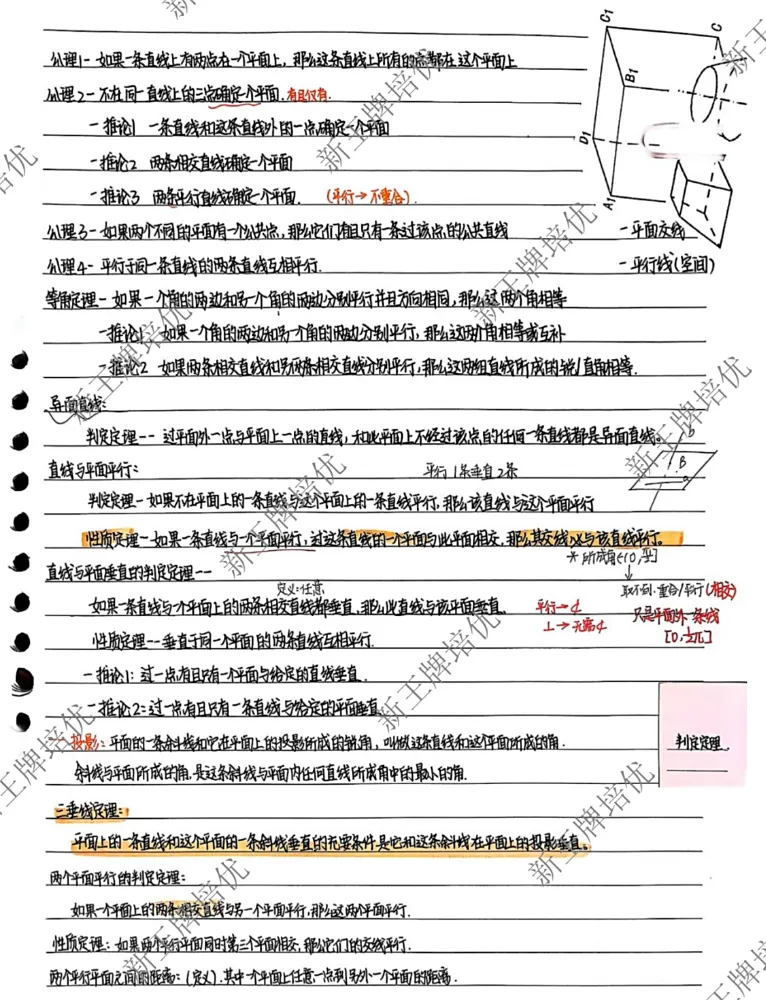 公理1- 如果一条直线上有两点在一个平面上，那么这条直线上所有的点都在这个平面上
公理2- 不在同一直线上的三点确定一个平面.有且仅有.
-推论1 一条直线和这条直线外的一点确定一个平面
-推论2 两条相交直线确定一个平面
-推论3 两条平行直线确定一个平面. (平行→不重合).
公理3-如果两个不同的平面有一个公共点，那么它们有且只有一条过该点的公共直线 -平面交线
公理4- 平行于同一条直线的两条直线互相平行. -平行线(空间)
等角定理-如果一个角的两边和另一个角的两边分别平行并且方向相同，那么这两个角相等
-推论1 如果一个角的两边和另一个角的两边分别平行，那么这两个角相等或互补
-推论2 如果两条相交直线和另两条相交直线分别平行，那么这两组直线所成的锐/直角相等.
异面直线:
判定定理-- 过平面外一点与平面上一点的直线，和此平面上不经过该点的任何一条直线都是异面直线。
b
B
a
直线与平面平行: 平行1条垂直2条
判定定理-如果不在平面上的一条直线与这个平面上的一条直线平行，那么该直线与这个平面平行
性质定理-如果一条直线与一个平面平行，过这条直线的一个平面与此平面相交，那么其交线必与该直线平行。
*所成角∈(0,
直线与平面垂直的判定定理--
定义:任意
取不到·重合/平行(相交)
如果一条直线与一个平面上的两条相交直线都垂直，那么此直线与该平面垂直.
平行→
⊥→无需
只是平面外一条线
[0,½π]
性质定理--垂直于同一个平面的两条直线互相平行.
-推论1: 过一点有且只有一个平面与给定的直线垂直.
-推论2:过一点有且只有一条直线与给定的平面垂直
-投影: 平面的一条斜线和它在平面上的投影所成的锐角，叫做这条直线和这个平面所成的角.
判定定理
斜线与平面所成的角.是这条斜线与平面内任何直线所成角中的最小的角.
三垂线定理:
平面上的一条直线和这个平面的一条斜线垂直的充要条件是它和这条斜线在平面上的投影垂直。
两个平面平行的判定定理:
如果一个平面上的两条相交直线与另一个平面平行,那么这两个平面平行.
性质定理: 如果两个平行平面同时第三个平面相交,那么它们的交线平行.
两个平行平面之间的距离: (定义).其中一个平面上任意一点到另外一个平面的距离.
C1
C
B1
D1
A1
新王牌培优
新王牌培优
新王牌培优
新王牌培优
新王牌培优
新王牌培优
新王牌培优
新王牌培优
新王牌培优
新王牌培优